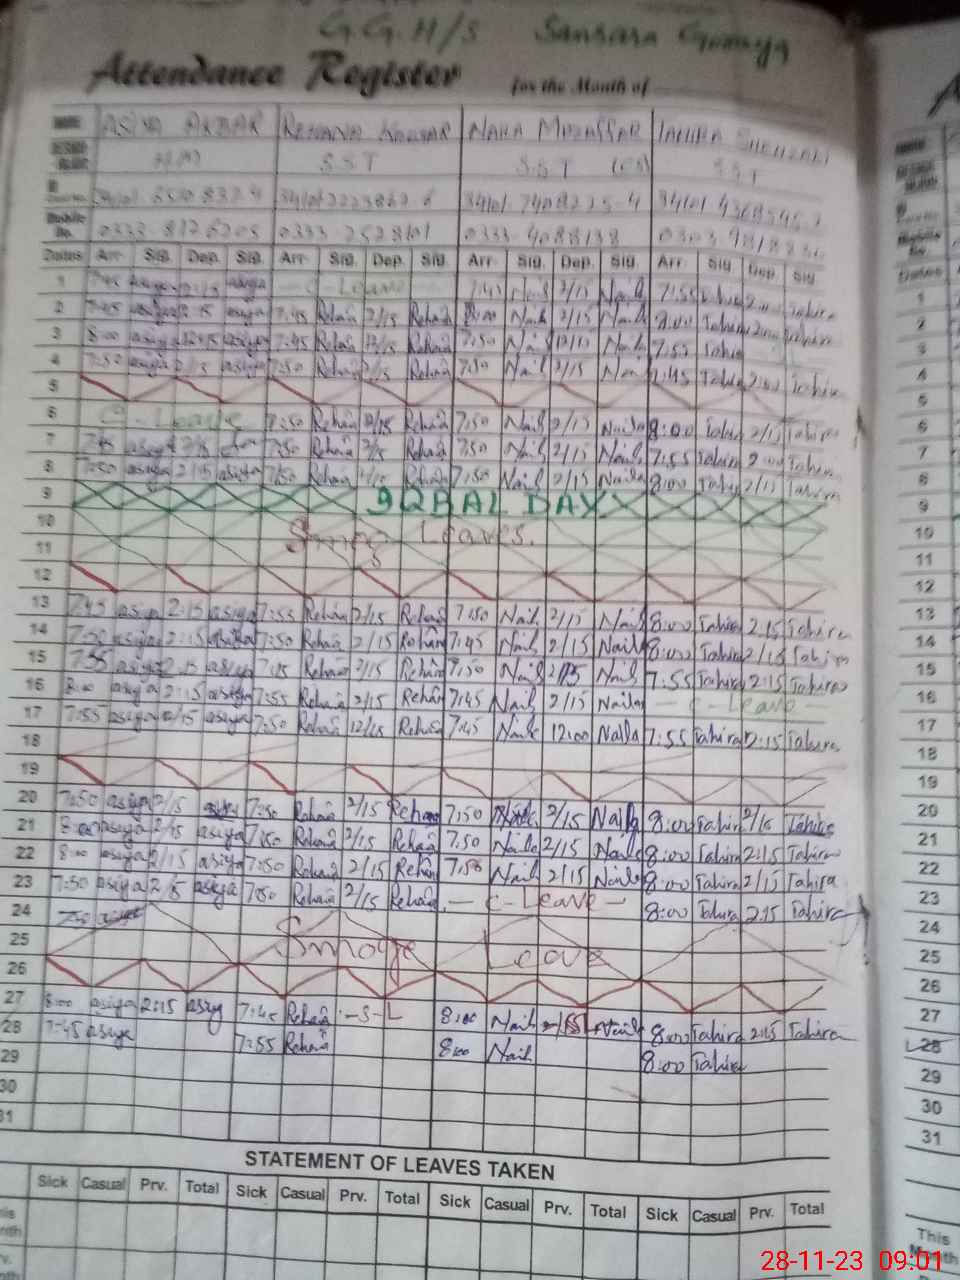 G.G.H/S Sansara Goraya
Attendance Register for the Month of
ASIYA AKBAR REHANA KAUSAR NAILA MUZAFFAR TAHIRA
HM S.S.T S.S.T (CS) S.S.T
0333 0333-2528101 0333-4088138 0303
Dates Arr. Sig. Dep. Sig. Arr. Sig. Dep. Sig. Arr. Sig. Dep. Sig. Arr. Sig. Dep. Sig.
1 7:45 asiya 2:15 asiya — C-Leave — 7:45 Naila 2/15 Naila 7:55 Tahira 2:00 Tahira 1
2 7:45 asiya 2:15 asiya 7:45 Rehana 2/15 Rehana 8:00 Naila 2/15 Naila 8:00 Tahira 2:00 Tahira 2
3 8:00 asiya 12:15 asiya 7:45 Rehana 12/15 Rehana 7:50 Naila 12/15 Naila 7:55 Tahira 3
4 7:50 asiya 2/15 asiya 7:50 Rehana 2/15 Rehana 7:50 Naila 2/15 Naila 7:45 Tahira 2:00 Tahira 4
5 5
6 C-Leave 7:50 Rehana 2/15 Rehana 7:50 Naila 2/15 Naila 8:00 Tahira 2/15 Tahira 6
7 7:45 asiya 2/15 7:50 Rehana 2/15 Rehana 7:50 Naila 2/15 Naila 7:55 Tahira 2:00 Tahira 7
8 7:50 asiya 2/15 asiya 7:50 Rehana 2/15 Rehana 7:50 Naila 2/15 Naila 8:00 Tahira 2/15 Tahira 8
9 IQBAL DAY 9
10 Smog Leaves. 10
11 11
12 12
13 7:45 asiya 2:15 asiya 7:55 Rehana 2/15 Rehana 7:50 Naila 2/15 Naila 8:00 Tahira 2:15 Tahira 13
14 7:50 asiya 2:15 asiya 7:50 Rehana 2/15 Rehana 7:45 Naila 2/15 Naila 8:00 Tahira 2/15 Tahira 14
15 7:55 asiya 2:15 asiya 7:45 Rehana 2/15 Rehana 7:50 Naila 2/15 Naila 7:55 Tahira 2:15 Tahira 15
16 8:00 asiya 2:15 asiya 7:55 Rehana 2/15 Rehana 7:45 Naila 2/15 Naila — C-Leave — 16
17 7:55 asiya 12/15 asiya 7:50 Rehana 12/15 Rehana 7:45 Naila 12:00 Naila 7:55 Tahira 12:15 Tahira 17
18 18
19 19
20 7:50 asiya 2/15 asiya 7:50 Rehana 2/15 Rehana 7:50 Naila 2/15 Naila 8:00 Tahira 2/15 Tahira 20
21 8:00 asiya 2/15 asiya 7:50 Rehana 2/15 Rehana 7:50 Naila 2/15 Naila 8:00 Tahira 2:15 Tahira 21
22 8:00 asiya 2/15 asiya 7:50 Rehana 2/15 Rehana 7:50 Naila 2/15 Naila 8:00 Tahira 2/15 Tahira 22
23 7:50 asiya 2/15 asiya 7:50 Rehana 2/15 Rehana — C-Leave — 8:00 Tahira 2:15 Tahira 23
24 7:50 asiya 24
25 Smoge Leave 25
26 26
27 8:00 asiya 2:15 asiya 7:45 Rehana -S-L 8:00 Naila 2/15 Naila 8:00 Tahira 2:15 Tahira 27
28 7:45 asiya 7:55 Rehana 8:00 Naila 8:00 Tahira 28
29 29
30 30
31 31
STATEMENT OF LEAVES TAKEN
Sick Casual Prv. Total Sick Casual Prv. Total Sick Casual Prv. Total Sick Casual Prv. Total
This Month
28-11-23 09:01